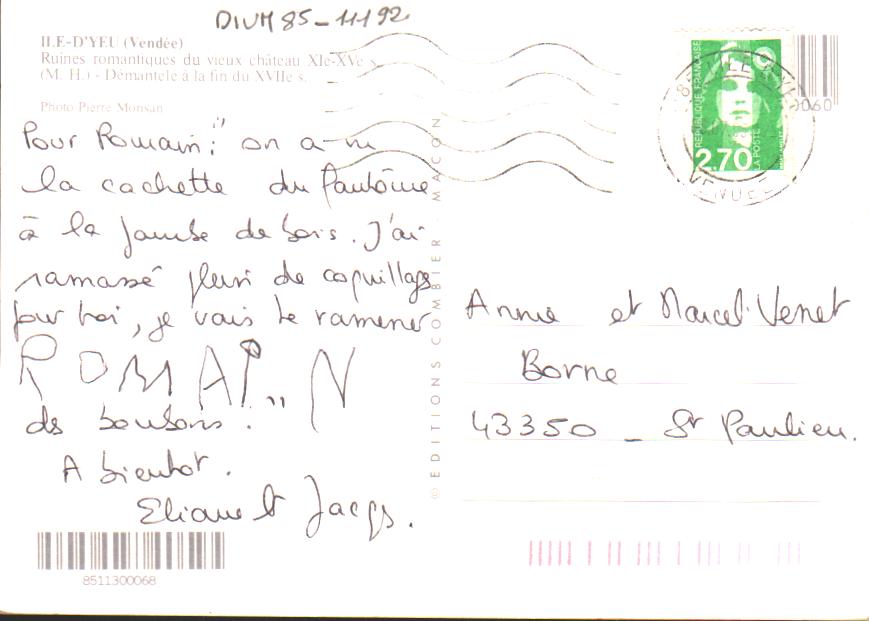 DIVM 85 - 11192
ILE-D'YEU (Vendée)
Ruines romantiques du vieux château XIe-XVe s.
(M. H.) - Démantelé à la fin du XVIIe s.
Photo Pierre Monsan
Pour Romain : " on a vu
la cachette du fantôme
à la jambe de bois. J'ai
ramassé plein de coquillages
pour toi, je vais te ramener
ROMAIN
des bonbons. "
A bientot.
Eliane et Jacqs.
8511300068
© EDITIONS COMBIER - MACON
REPUBLIQUE FRANÇAISE
2.70
LA POSTE
0060
Annie et Marcel Venet
Borne
43350 - St Paulien.